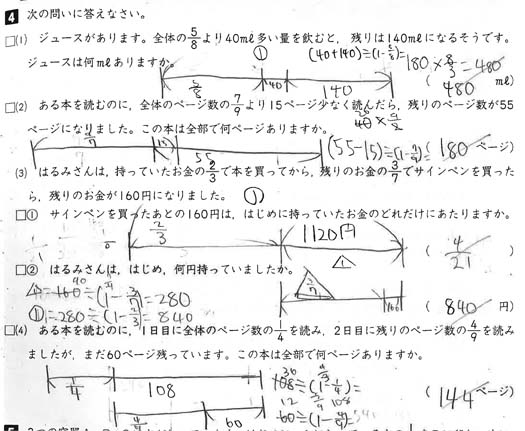 4 次の問いに答えなさい。
□(1) ジュースがあります。全体の5/8より40mℓ多い量を飲むと、残りは140mℓになるそうです。
ジュースは何mℓありますか。
① (40+140)÷(1-5/8)=
180×8/3=480
5/8 40 140
( 480 mℓ)
□(2) ある本を読むのに、全体のページ数の7/9より15ページ少なく読んだら、残りのページ数が55
ページになりました。この本は全部で何ページありますか。
40×9/2
7/9 15 55
(55-15)÷(1-7/9)
( 180 ページ)
(3) はるみさんは、持っていたお金の2/3で本を買ってから、残りのお金の3/7でサインペンを買った
ら、残りのお金が160円になりました。
①
□① サインペンを買ったあとの160円は、はじめに持っていたお金のどれだけにあたりますか。
2/3 1120円
△1
( 4/21 )
□② はるみさんは、はじめ、何円持っていましたか。
△1=160÷(1-3/7)=280
①=280÷(1-2/3)=840
3/7 160
( 840 円)
□(4) ある本を読むのに、1日目に全体のページ数の1/4を読み、2日目に残りのページ数の4/9を読み
ましたが、まだ60ページ残っています。この本は全部で何ページありますか。
1/4 108
108÷(1-1/4)=
( 144 ページ)
4/9 60
60÷(1-4/9)